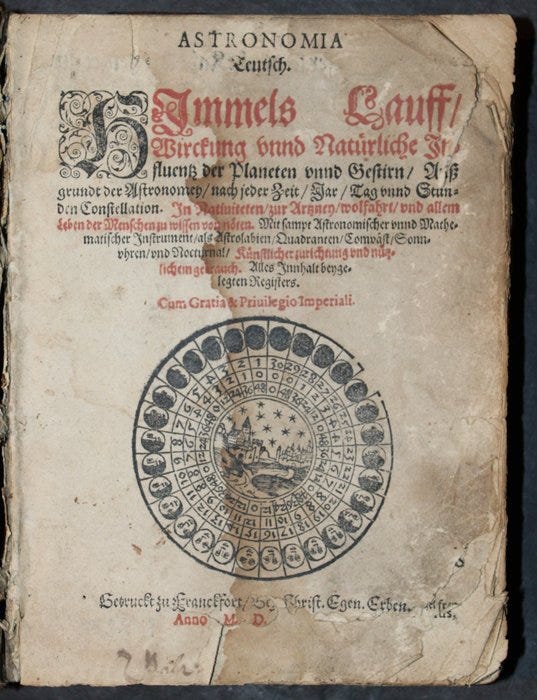 ASTRONOMIA
Teutsch.
HImmels Lauff/
Wirckung vnnd Natürliche In-
fluentz der Planeten vnnd Gestirn/ Auß
grundt der Astronomey/ nach jeder Zeit/ Jar/ Tag vnnd Stun-
den Constellation. In Natiuiteten/ zur Artzney/ wolfahrt/ vnd allem
Leben der Menschen zu wissen vonnöten. Mit sampt Astronomischer vnnd Mathe-
matischer Instrument/ als Astrolabien/ Quadranten/ Compäst/ Sonn-
vhren/ vnd Nocturnal/ Künstlicher zurichtung vnd nütz-
lichem gebrauch. Alles Innhalt beyge-
legten Registers.
Cum Gratia & Priuilegio Imperiali.
Getruckt zu Franckfort/ Bey Christ. Egen. Erben.
Anno M. D.